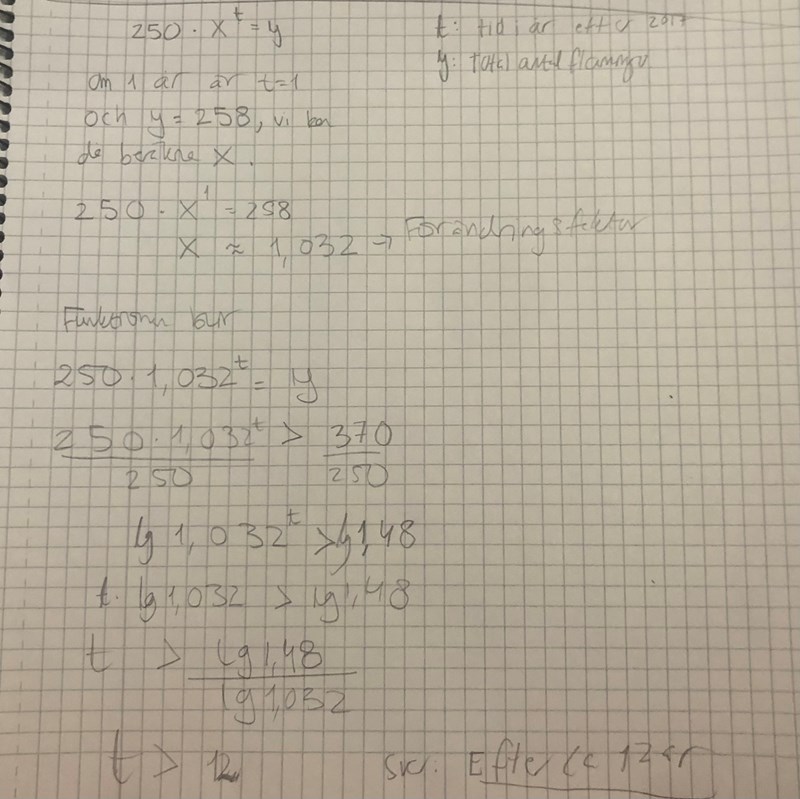 250 · x^t = y
t: tid i år efter 2017
y: Total antal flamingo
Om 1 år är t=1
och y = 258, vi kan
då beräkna x.
250 · x^1 = 258
x ≈ 1,032 → Förändringsfaktor
Funktionen blir
250 · 1,032^t = y
250 · 1,032^t / 250 > 370 / 250
lg 1,032^t > lg 1,48
t · lg 1,032 > lg 1,48
t > lg 1,48 / lg 1,032
t > 12
Svar: Efter ca 12 år